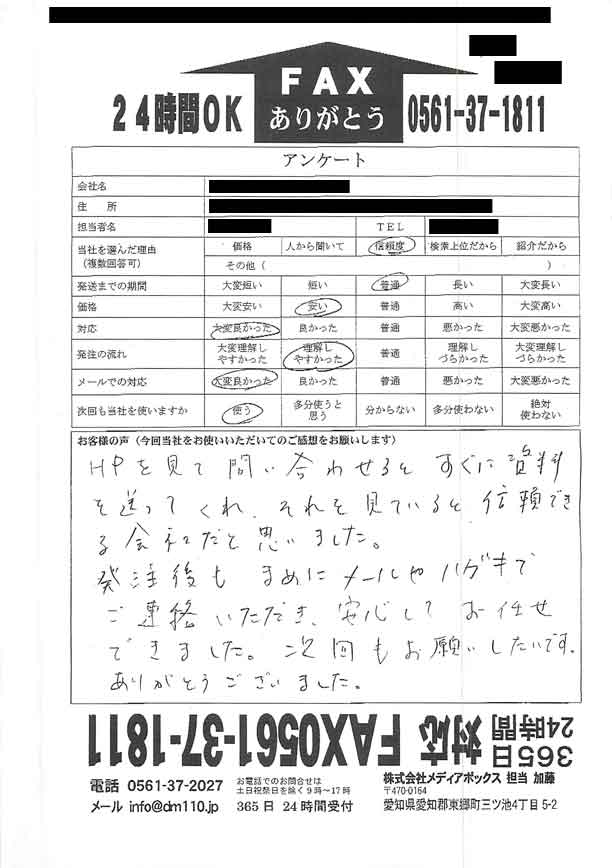 FAX
ありがとう
24時間OK
0561-37-1811
アンケート
会社名
住 所
担当者名 TEL
当社を選んだ理由（複数回答可） 価格 人から聞いて 信頼度 検索上位だから 紹介だから
その他（ ）
発送までの期間 大変短い 短い 普通 長い 大変長い
価格 大変安い 安い 普通 高い 大変高い
対応 大変良かった 良かった 普通 悪かった 大変悪かった
発注の流れ 大変理解しやすかった 理解しやすかった 普通 理解しづらかった 大変理解しづらかった
メールでの対応 大変良かった 良かった 普通 悪かった 大変悪かった
次回も当社を使いますか 使う 多分使うと思う 分からない 多分使わない 絶対使わない
お客様の声（今回当社をお使いいただいてのご感想をお願いします）
HPを見て問い合わせると すぐに資料
を送ってくれ、それを見ていると信頼でき
る会社だと思いました。
発注後も まめにメールやハガキで
ご連絡いただき、安心してお任せ
できました。次回もお願いしたいです。
ありがとうございました。
365日
24時間 対応 FAX0561-37-1811
電話 0561-37-2027
お電話でのお問合せは
土日祝祭日を除く9時～17時
株式会社メディアボックス 担当 加藤
〒470-0164
メール info@dm110.jp
365日 24時間受付
愛知県愛知郡東郷町三ツ池4丁目5-2